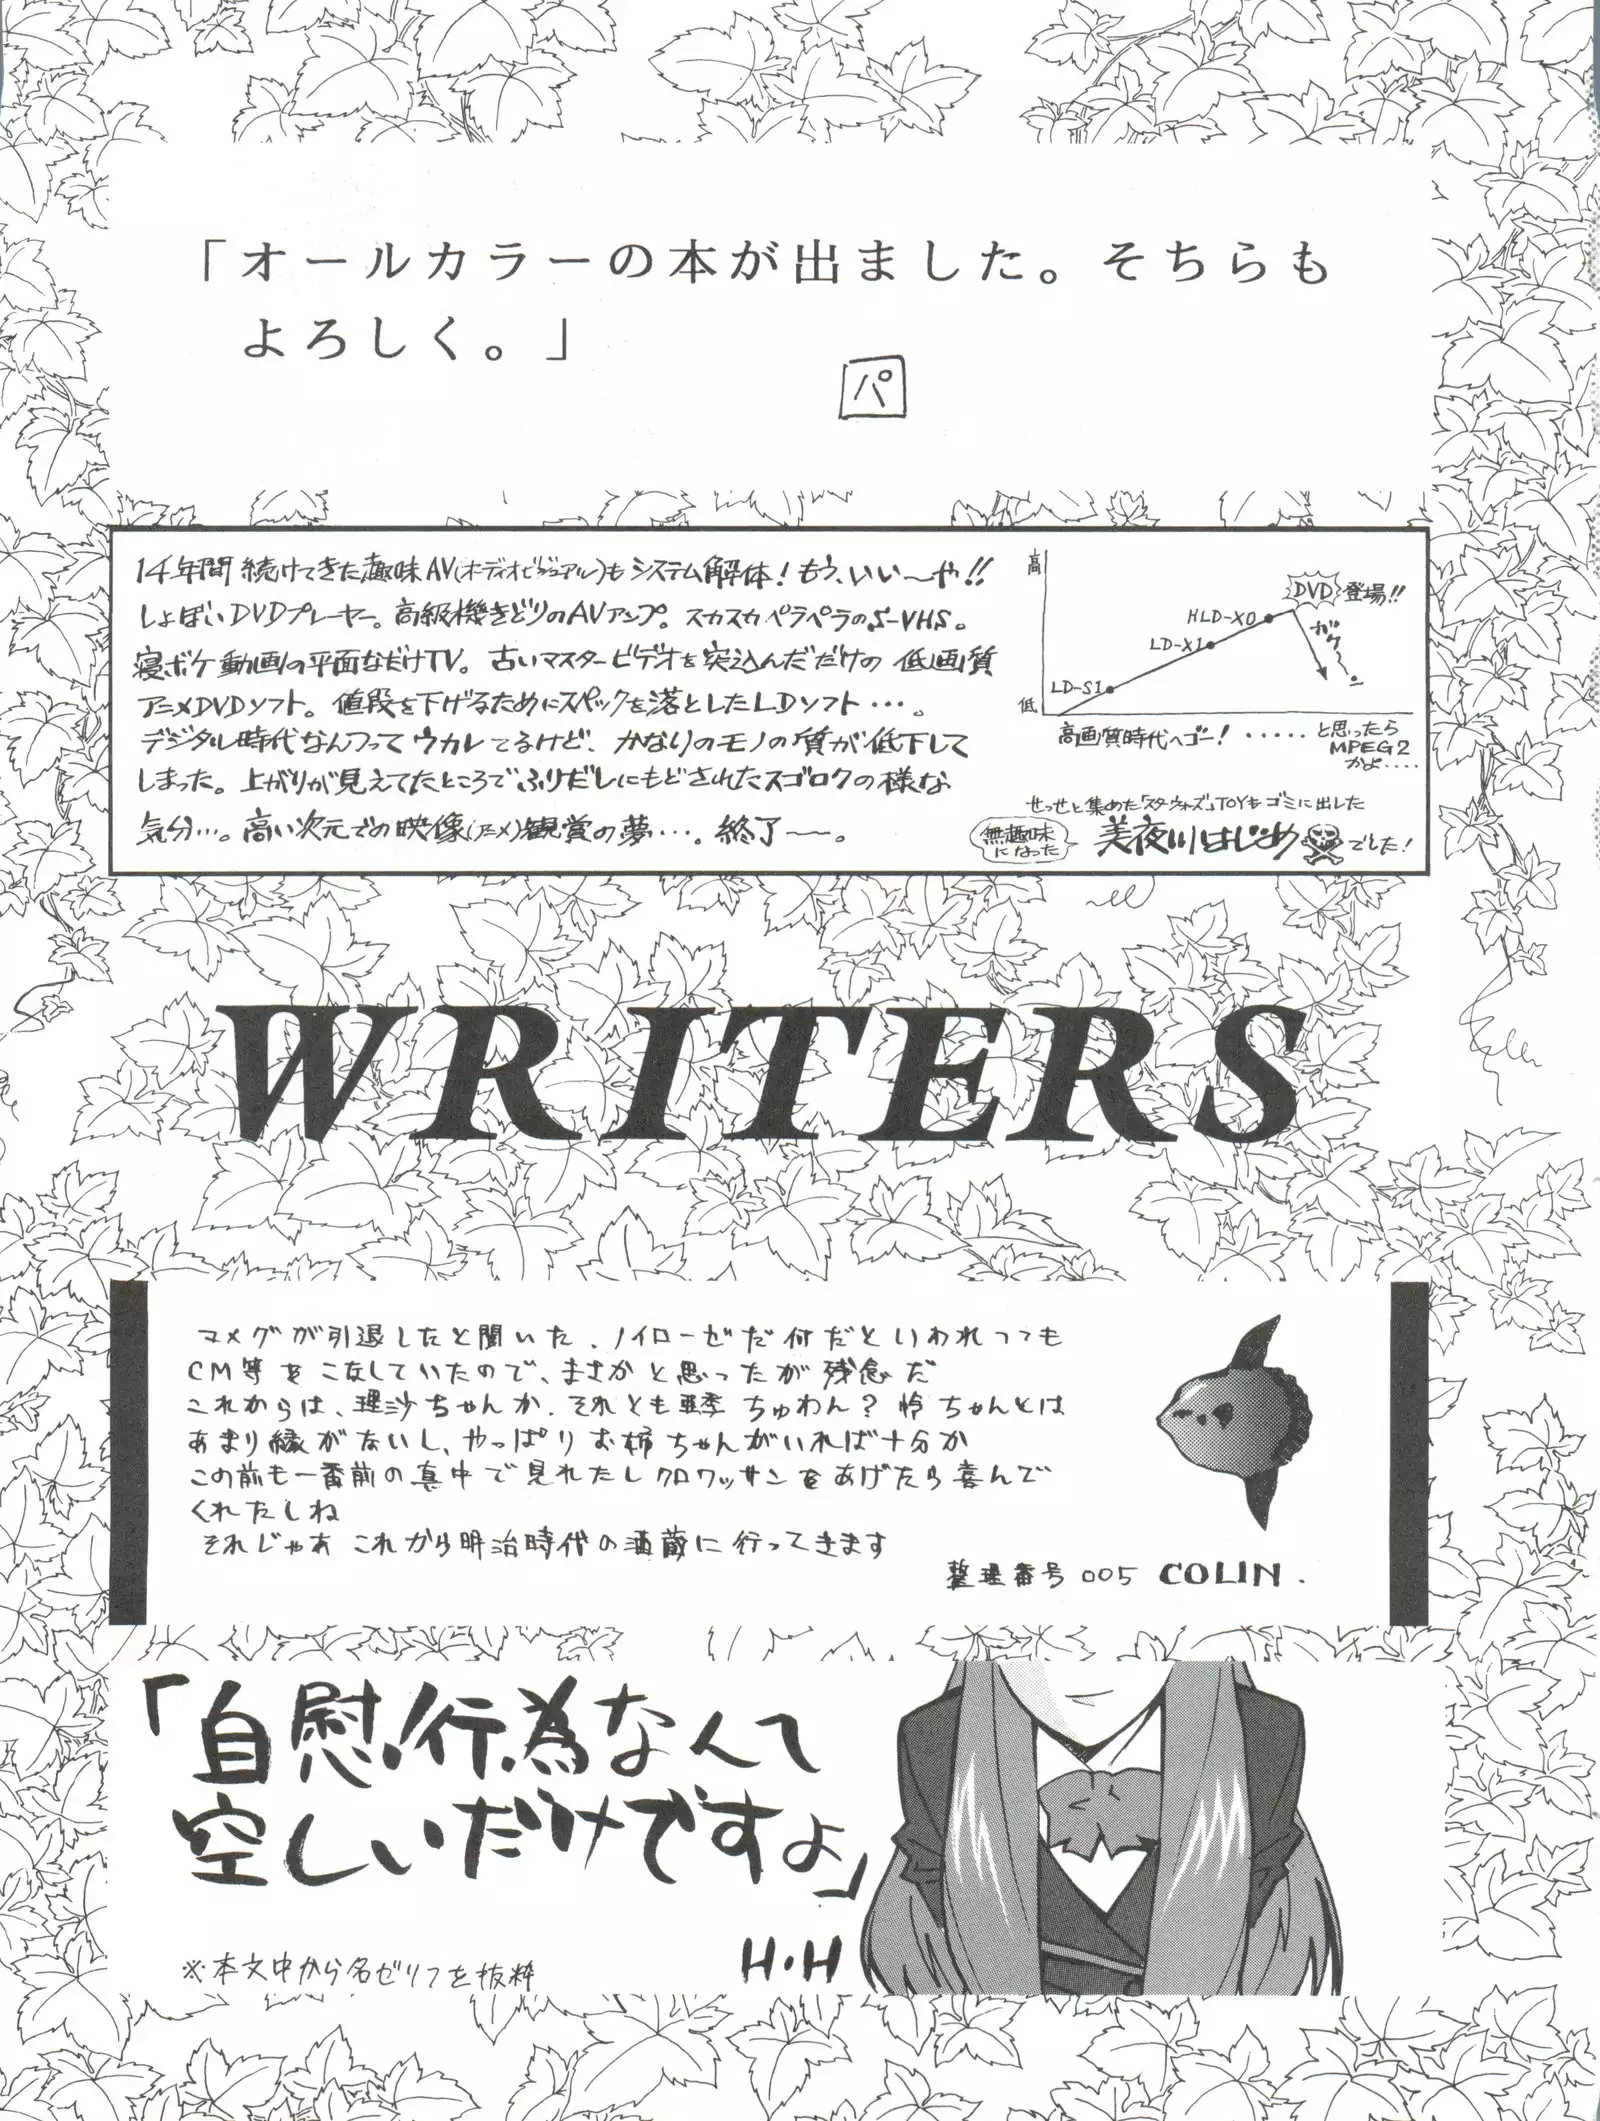 「オールカラーの本が出ました。そちらも
よろしく。」
パ
14年間続けてきた趣味AV(オーディオビジュアル)もシステム解体！もう、いい〜や!!
しょぼいDVDプレーヤー。高級機きどりのAVアンプ。スカスカペラペラのS-VHS。
寝ボケ動画の平面なだけTV。古いマスタービデオを突込んだだけの低画質
アニメDVDソフト。値段を下げるためにスペックを落としたLDソフト…。
デジタル時代なんつってウカレてるけど、かなりのモノの質が低下して
しまった。上がりが見えてたところでふりだしにもどされたスゴロクの様な
気分…。高い次元での映像(アニメ)観賞の夢…。終了〜。
高
低
LD-S1
LD-X1
HLD-X0
DVD登場!!
ガク〜ン
高画質時代へゴー！・・・・・と思ったら
MPEG2
かよ・・・・
せっせと集めた「スターウォーズ」TOYもゴミに出した
無趣味
になった
美夜川はじめ でした！
WRITERS
マメグが引退したと聞いた、ノイローゼだ何だといわれつつも
CM等をこなしていたので、まさかと思ったが残念だ
これからは、理沙ちゃんか、それとも亜季ちゅわん？怜ちゃんとは
あまり縁がないし、やっぱりお姉ちゃんがいれば十分か
この前も一番前の真中で見れたしクロワッサンをあげたら喜んで
くれたしね
それじゃあこれから明治時代の酒蔵に行ってきます
整理番号 005 COLIN.
「自慰行為なんて
空しいだけですよ」
H・H
※本文中から名ゼリフを抜粋